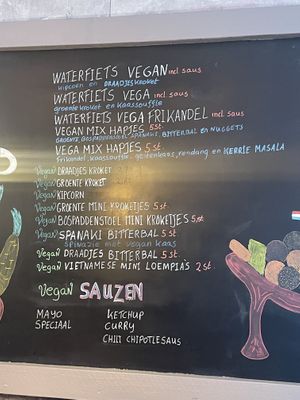 WATERFIETS VEGAN incl saus
kipcorn en DRAADJESKROKET
WATERFIETS VEGA incl. saus
groente kroket en kaassouffle
WATERFIETS VEGA FRIKANDEL incl. saus
VEGAN MIX HAPJES 5 st.
GROENTE, BOSPADDENSTOEL, SPANAKI, BITTERBAL en NUGGETS
VEGA MIX HAPJES 5 st.
frikandel, kaassouffle, geitenkaas, rendang en KERRIE MASALA
Vegan DRAADJES KROKET
Vegan GROENTE KROKET
Vegan KIPCORN
Vegan GROENTE MINI KROKETJES 5 st.
Vegan BOSPADDENSTOEL MINI KROKETJES 5 st
Vegan SPANAKI BITTERBAL 5 st
Spinazie met vegan kaas
Vegan DRAADJES BITTERBAL 5 st.
Vegan VIETNAMESE MINI LOEMPIA'S 2 st.
Vegan SAUZEN
MAYO KETCHUP
SPECIAAL CURRY
CHILI CHIPOTLESAUS